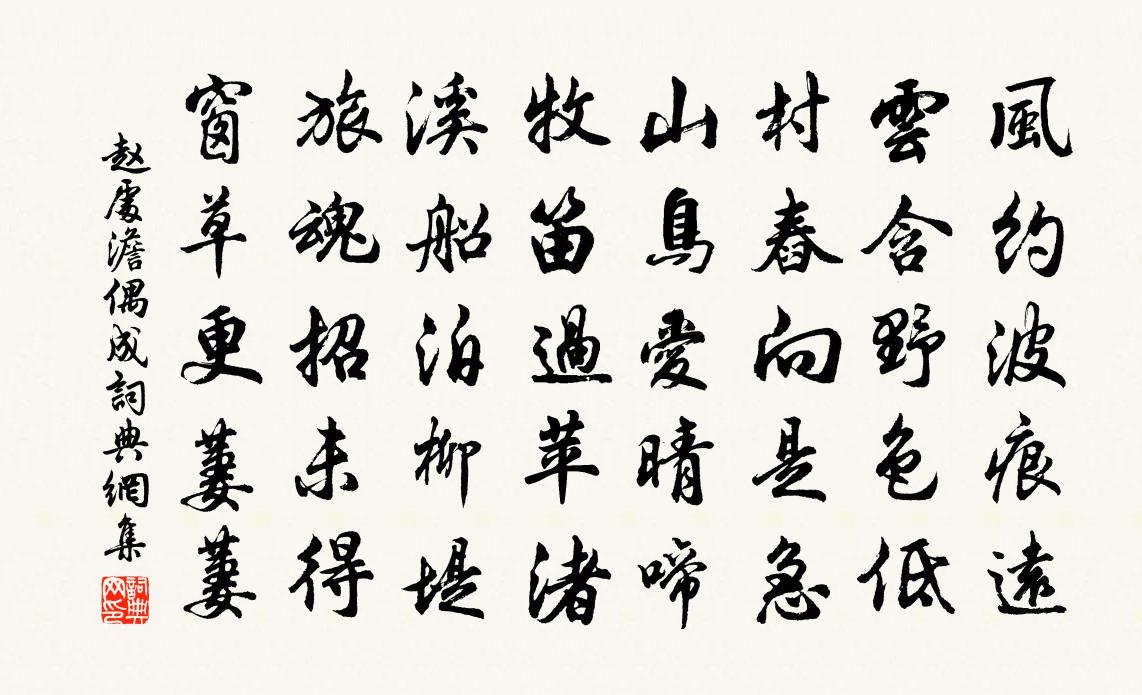 風約波痕遠
雲含野色低
村舂向是急
山鳥愛晴啼
牧笛過苹渚
溪船泊柳堤
旅魂招未得
窗草更萋萋
赵處澹偶成詞典網集
詞典网印